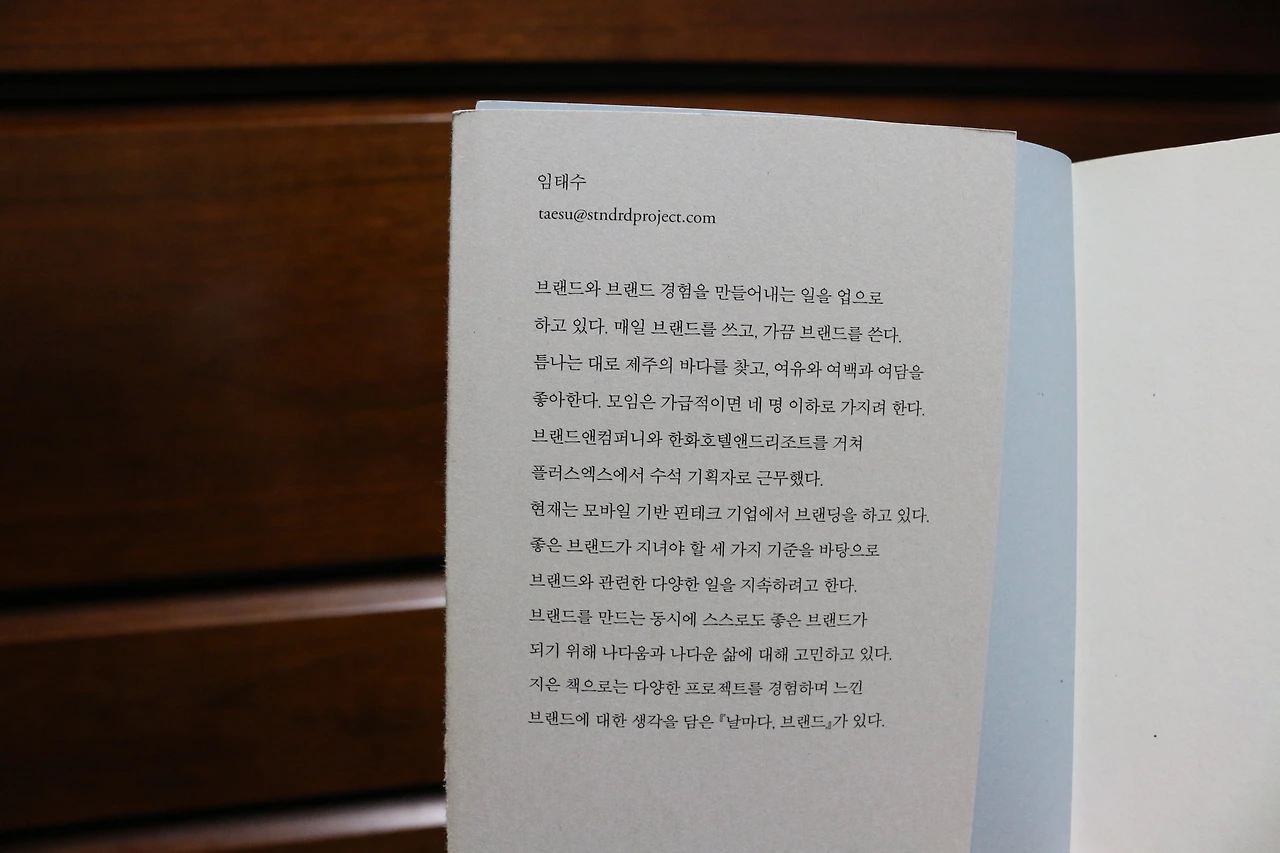 임태수
taesu@stndrdproject.com
브랜드와 브랜드 경험을 만들어내는 일을 업으로
하고 있다. 매일 브랜드를 쓰고, 가끔 브랜드를 쓴다.
틈나는 대로 제주의 바다를 찾고, 여유와 여백과 여담을
좋아한다. 모임은 가급적이면 네 명 이하로 가지려 한다.
브랜드앤컴퍼니와 한화호텔앤드리조트를 거쳐
플러스엑스에서 수석 기획자로 근무했다.
현재는 모바일 기반 핀테크 기업에서 브랜딩을 하고 있다.
좋은 브랜드가 지녀야 할 세 가지 기준을 바탕으로
브랜드와 관련한 다양한 일을 지속하려고 한다.
브랜드를 만드는 동시에 스스로도 좋은 브랜드가
되기 위해 나다움과 나다운 삶에 대해 고민하고 있다.
지은 책으로는 다양한 프로젝트를 경험하며 느낀
브랜드에 대한 생각을 담은 『날마다, 브랜드』가 있다.